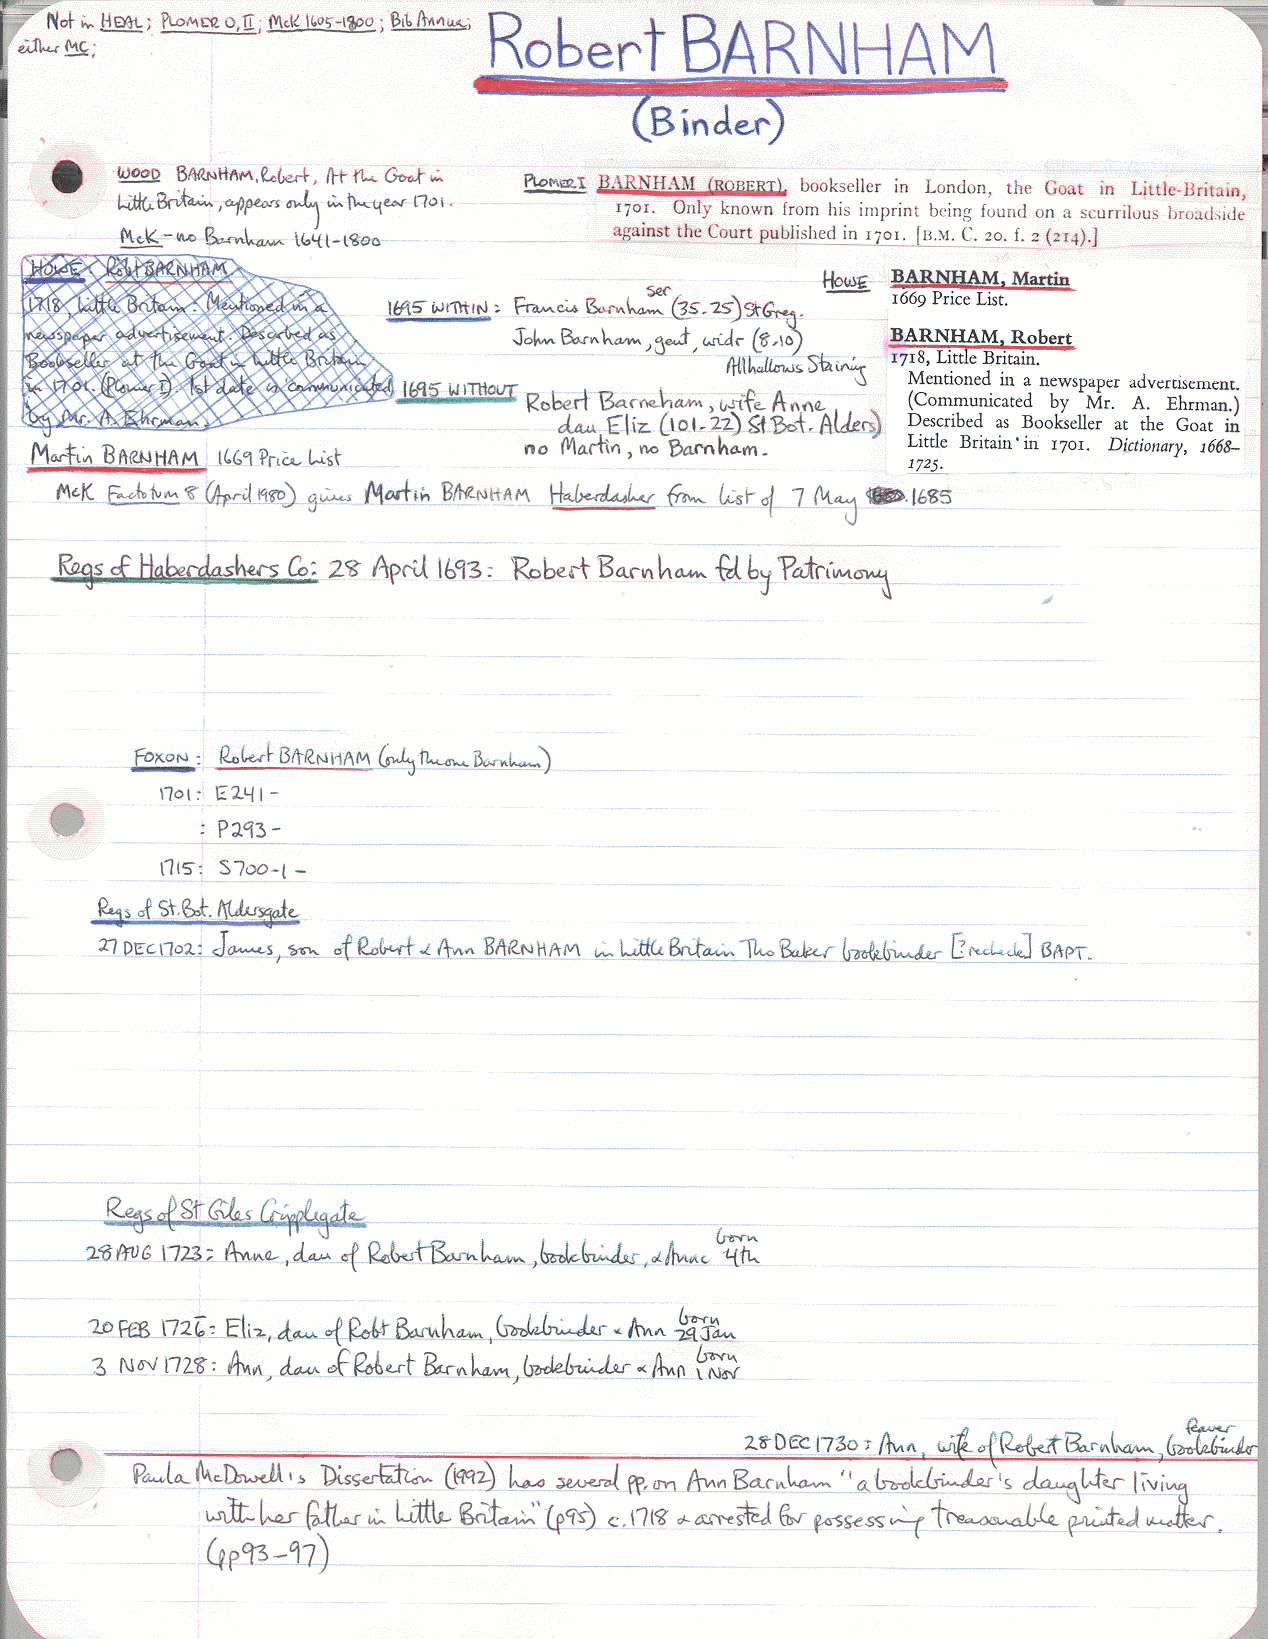 Not in HEAL; PLOMER O, II; McK 1605-1800; Bib Annua;
either MC;
Robert BARNHAM
(Binder)
WOOD BARNHAM, Robert, At the Goat in
Little Britain, appears only in the year 1701.
McK - no Barnham 1641-1800
PLOMER I BARNHAM (ROBERT), bookseller in London, the Goat in Little-Britain,
1701. Only known from his imprint being found on a scurrilous broadside
against the Court published in 1701. [B.M. C. 20. f. 2 (214).]
HOWE: Robt BARNHAM
1718, Little Britain. Mentioned in a
newspaper advertisement. Described as
Bookseller at the Goat in Little Britain
in 1701. (Plomer I). 1st date is communicated
by Mr. A. Ehrman.
1695 WITHIN: Francis Barnham ser (35.25) St Greg.
John Barnham, gent, widr (8.10)
Allhallows Staining
1695 WITHOUT Robert Barneham, wife Anne
dau Eliz (101.22) St Bot. Alders)
no Martin, no Barnham.
HOWE BARNHAM, Martin
1669 Price List.
BARNHAM, Robert
1718, Little Britain.
Mentioned in a newspaper advertisement.
(Communicated by Mr. A. Ehrman.)
Described as Bookseller at the Goat in
Little Britain in 1701. Dictionary, 1668–
1725.
Martin BARNHAM 1669 Price List
McK Factotum 8 (April 1980) gives Martin BARNHAM Haberdasher from list of 7 May 1685
Regs of Haberdashers Co: 28 April 1693: Robert Barnham fd by Patrimony
FOXON: Robert BARNHAM (only the one Barnham)
1701: E241-
: P293-
1715: S700-1-
Regs of St. Bot. Aldersgate
27 DEC 1702: James, son of Robert & Ann BARNHAM in Little Britain Tho Baker bookbinder [? recheck] BAPT.
Regs of St Giles Cripplegate
28 AUG 1723: Anne, dau of Robert Barnham, bookbinder, & Anne born 4th
20 FEB 1726: Eliz, dau of Robt Barnham, bookbinder & Ann born 29 Jan
3 NOV 1728: Ann, dau of Robert Barnham, bookbinder & Ann born 1 Nov
28 DEC 1730: Ann, wife of Robert Barnham, bookbinder feaver
Paula McDowell's Dissertation (1992) has several pp. on Ann Barnham "a bookbinder's daughter living
with her father in Little Britain" (p95) c.1718 & arrested for possessing treasonable printed matter.
(pp93-97)